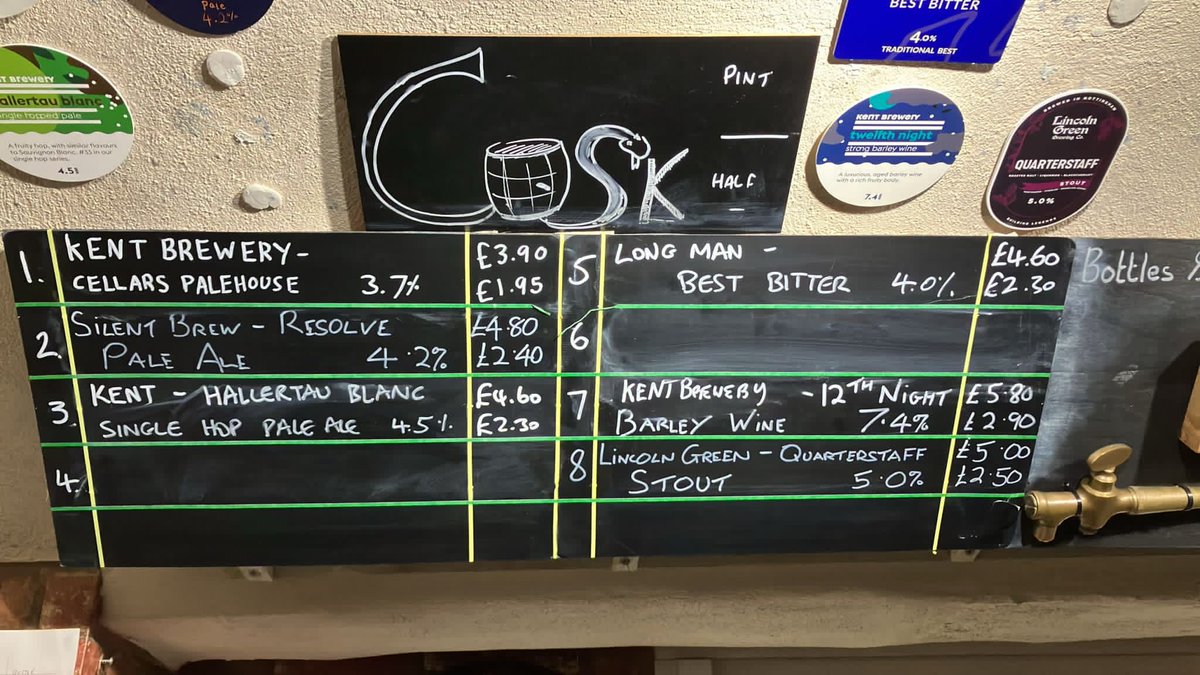 Pale
4.2%
BEST BITTER
4.0%
TRADITIONAL BEST
KENT BREWERY
hallertau blanc
single hopped pale
A fruity hop, with similar flavours
to Sauvignon Blanc, #35 in our
single hop series.
4.5
Cask
PINT
HALF
KENT BREWERY
twelfth night
strong barley wine
A luxurious, aged barley wine
with a rich fruity body.
7.4
BREWED IN NOTTINGHAM
Lincoln
Green
Brewing Co.
QUARTERSTAFF
STOUT
5.0%
1. KENT BREWERY- £3.90
CELLARS PALEHOUSE 3.7% £1.95
2. SILENT BREW - RESOLVE £4.80
PALE ALE 4.2% £2.40
3. KENT - HALLERTAU BLANC £4.60
SINGLE HOP PALE ALE 4.5% £2.30
4.
5 LONG MAN - £4.60
BEST BITTER 4.0% £2.30
6
7 KENT BREWERY - 12TH NIGHT £5.80
BARLEY WINE 7.4% £2.90
8 LINCOLN GREEN - QUARTERSTAFF £5.00
STOUT 5.0% £2.50
Bottles